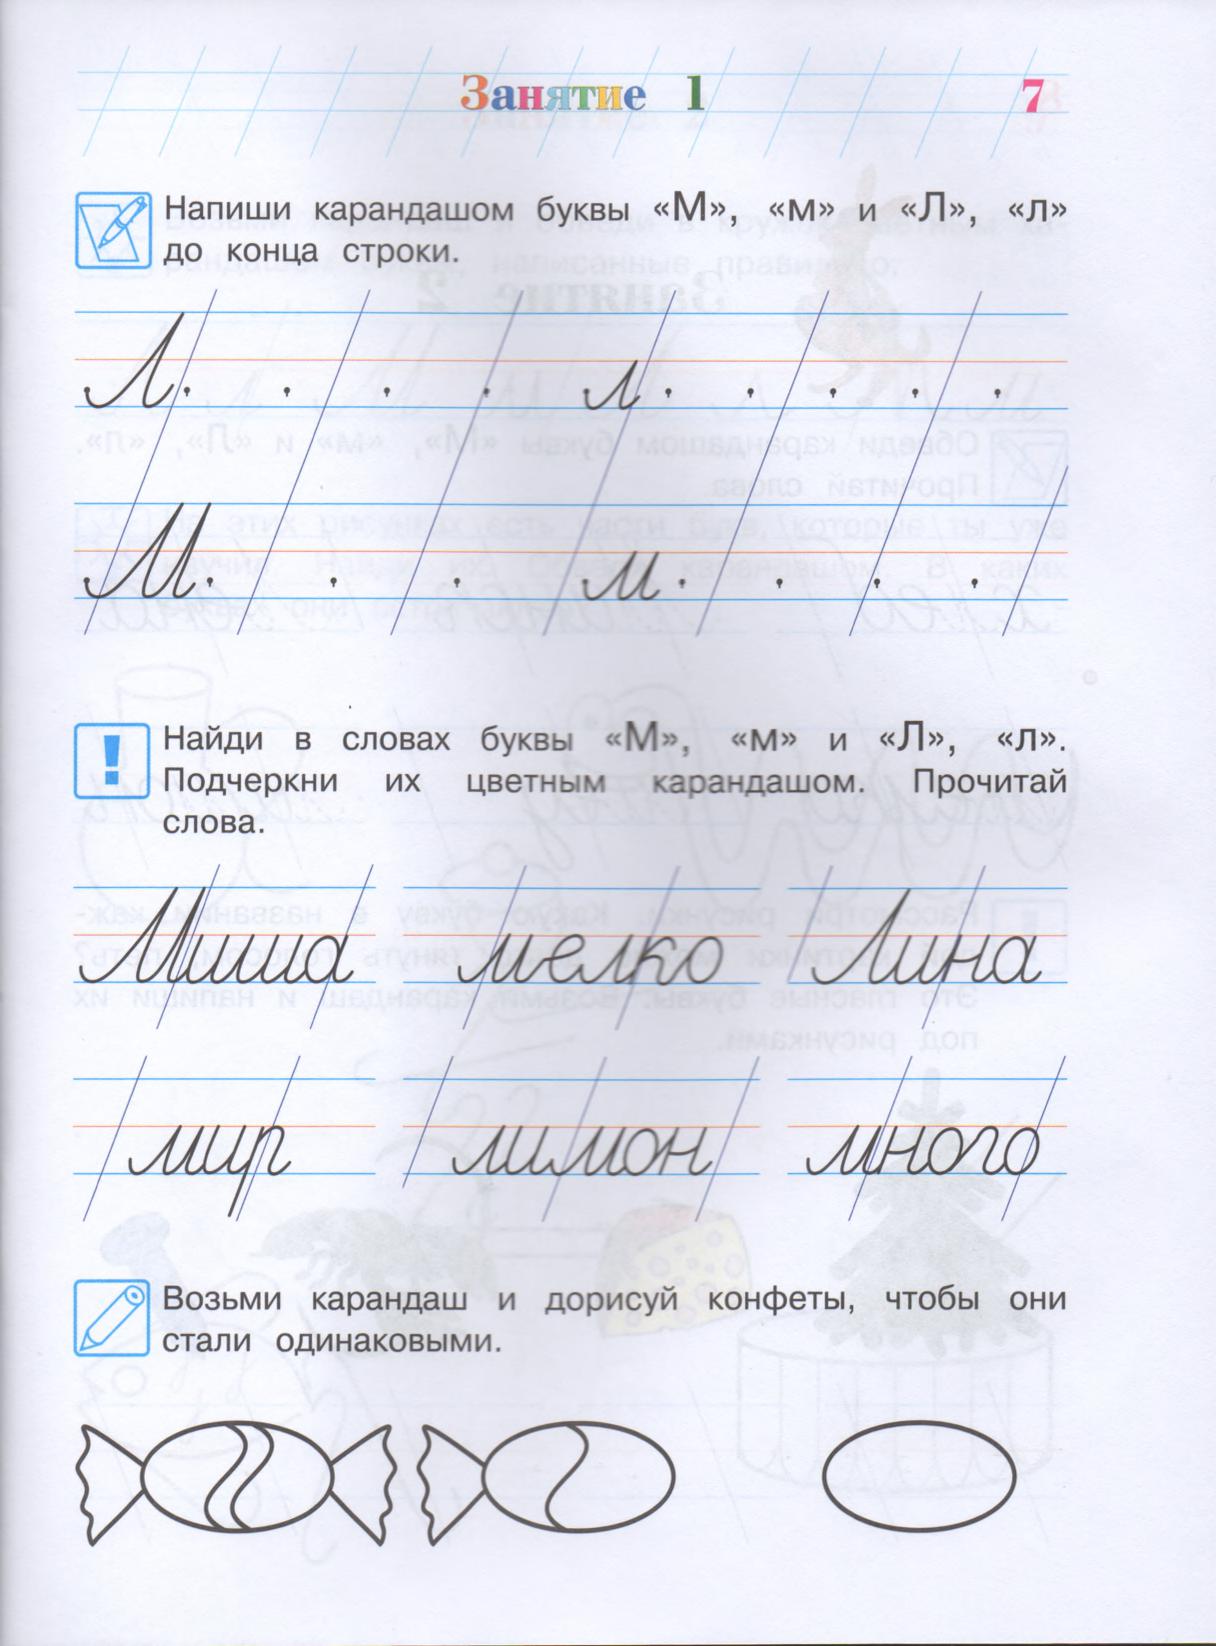 Занятие 1 7
Напиши карандашом буквы «М», «м» и «Л», «л»
до конца строки.
Л л
М м
Найди в словах буквы «М», «м» и «Л», «л».
Подчеркни их цветным карандашом. Прочитай
слова.
Миша мелко Лина
мир лимон много
Возьми карандаш и дорисуй конфеты, чтобы они
стали одинаковыми.